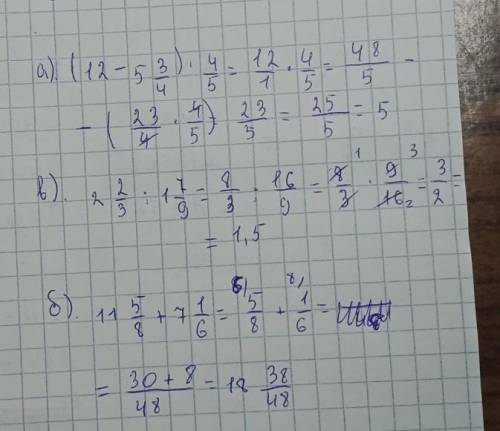 а). (12 − 5 3/4) · 4/5 = 12/1 · 4/5 = 48/5 −
− (23/4 · 4/5) 23/5 = 25/5 = 5
в). 2 2/3 : 1 7/9 = 8/3 : 16/9 = 8/3 1 · 9/16 3 2 = 3/2 =
= 1,5
б). 11 5/8 + 7 1/6 = 6) 5/8 + 8) 1/6 =
= 30 + 8/48 = 18 38/48